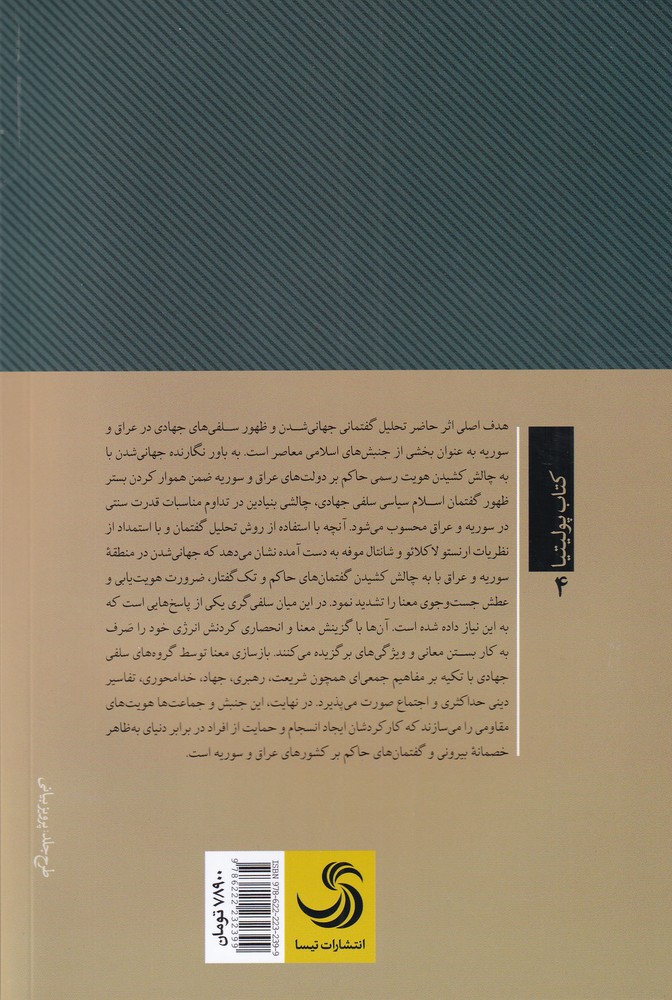 هدف اصلی اثر حاضر تحلیل گفتمانی جهانی‌شدن و ظهور سلفی‌های جهادی در عراق و
سوریه به عنوان بخشی از جنبش‌های اسلامی معاصر است. به باور نگارنده جهانی‌شدن با
به چالش کشیدن هویت رسمی حاکم بر دولت‌های عراق و سوریه ضمن هموار کردن بستر
ظهور گفتمان اسلام سیاسی سلفی جهادی، چالشی بنیادین در تداوم مناسبات قدرت سنتی
در سوریه و عراق محسوب می‌شود. آنچه با استفاده از روش تحلیل گفتمان و با استمداد از
نظریات ارنستو لاکلائو و شانتال موفه به دست آمده نشان می‌دهد که جهانی‌شدن در منطقهٔ
سوریه و عراق با به چالش کشیدن گفتمان‌های حاکم و تک‌گفتار، ضرورت هویت‌یابی و
عطش جست‌وجوی معنا را تشدید نمود. در این میان سلفی‌گری یکی از پاسخ‌هایی است که
به این نیاز داده شده است. آن‌ها با گزینش معنا و انحصاری کردنش انرژی خود را صَرف
به کار بستن معانی و ویژگی‌های برگزیده می‌کنند. بازسازی معنا توسط گروه‌های سلفی
جهادی با تکیه بر مفاهیم جمعی‌ای همچون شریعت، رهبری، جهاد، خدامحوری، تفاسیر
دینی حداکثری و اجتماع صورت می‌پذیرد. در نهایت، این جنبش و جماعت‌ها هویت‌های
مقاومی را می‌سازند که کارکردشان ایجاد انسجام و حمایت از افراد در برابر دنیای به‌ظاهر
خصمانهٔ بیرونی و گفتمان‌های حاکم بر کشورهای عراق و سوریه است.
کتاب پولیتیا
۴
طرح جلد: پرویز بیانی
انتشارات تیسا
ISBN 978-622-223-239-9
9786222232399
۷۸۹۰۰ تومان